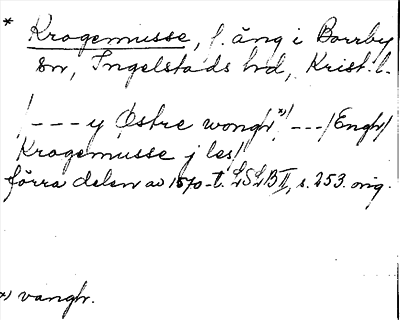 * Krogemusse, f. äng i Borrby
sn, Ingelstads hd, Krist. l.
/ - - - y Østre wongh *)/ - - - /Engh/
Krogemusse j les/
förra delen av 1570-t. LSLB II, s. 253. orig.
*) vangh.